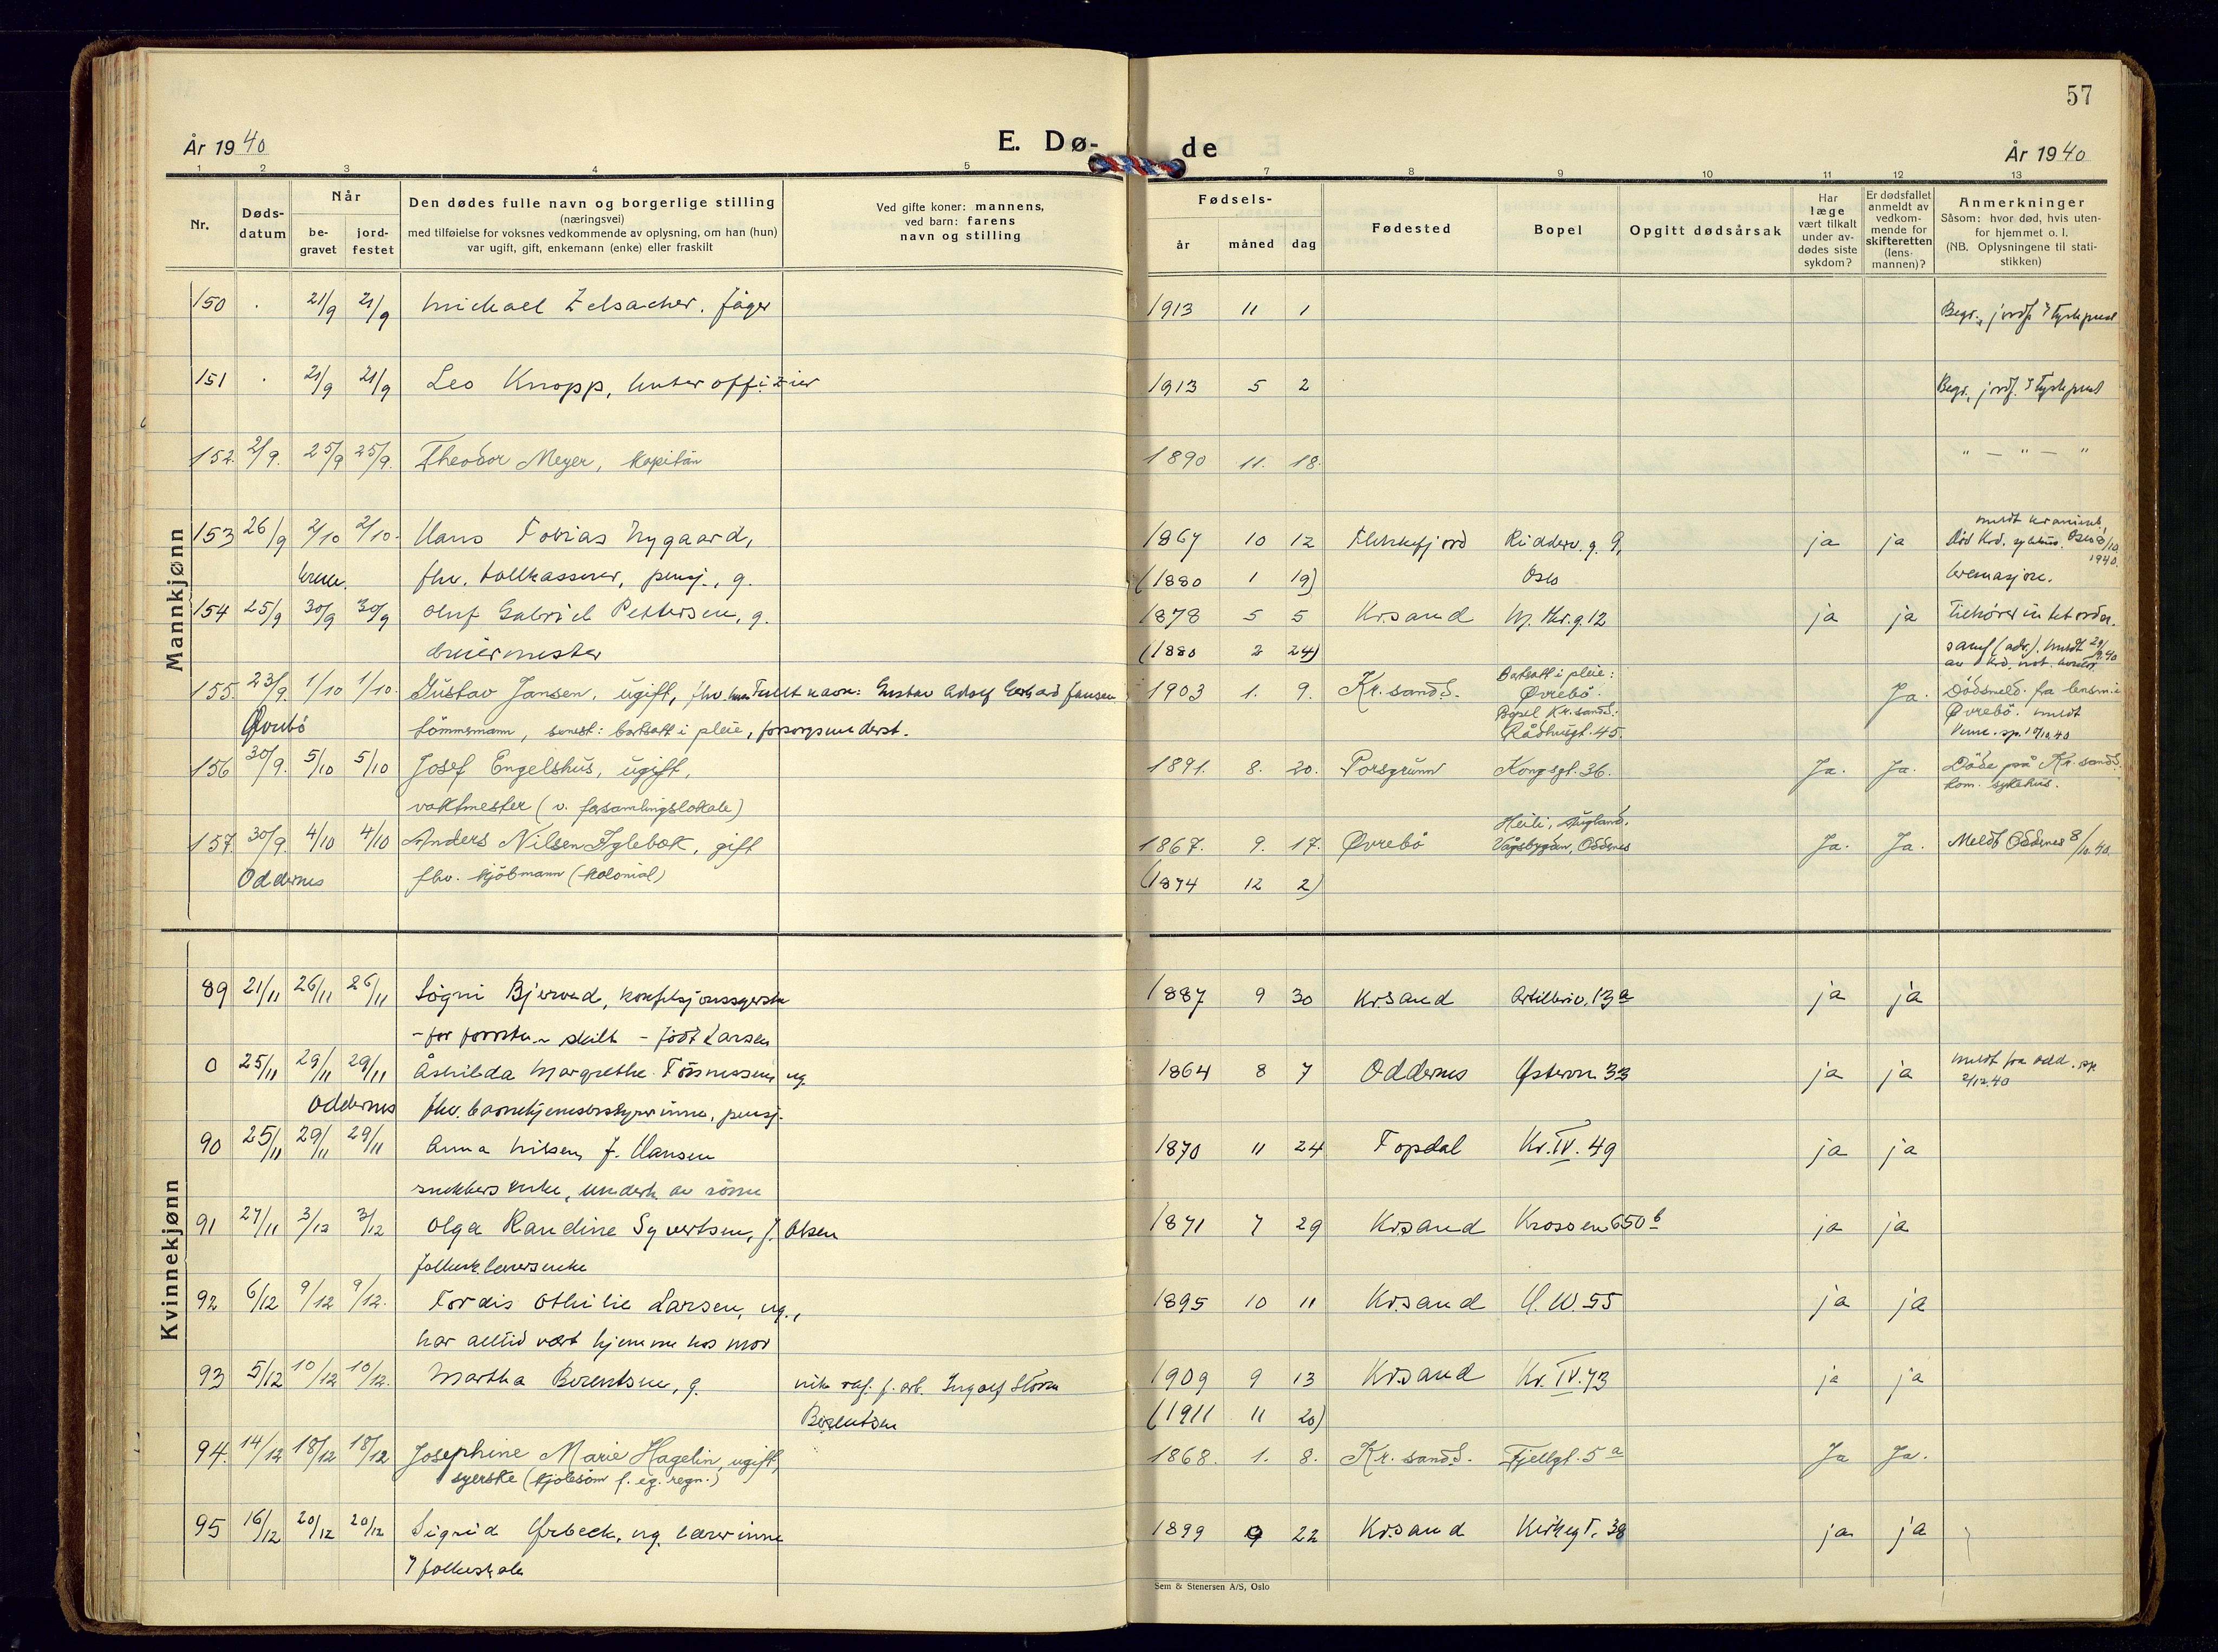 57
År 1940
E. Dø-
de
År 1940
1 2 3 4 5 7 8 9 10 11 12 13
Nr.
Døds-
datum
Når
be-
gravet
jord-
festet
Den dødes fulle navn og borgerlige stilling
(næringsvei)
med tilføielse for voksnes vedkommende av oplysning, om han (hun)
var ugift, gift, enkemann (enke) eller fraskilt
Ved gifte koner: mannens,
ved barn: farens
navn og stilling
Fødsels-
år måned dag
Fødested
Bopel
Opgitt dødsårsak
Har
læge
vært tilkalt
under av-
dødes siste
sykdom?
Er dødsfallet
anmeldt av
vedkom-
mende for
skifteretten
(lens-
mannen)?
Anmerkninger
Såsom: hvor død, hvis uten-
for hjemmet o. l.
(NB. Oplysningene til stati-
stikken)
Mannkjønn
150 . 21/9 21/9 Michael Zelsacher. Jäger 1913 11 1 Begr., jordf.
151 . 21/9 21/9 Leo Knopp, Unteroffizier 1913 5 2 Begr., jordf.
152. 21/9. 25/9 25/9. Theodor Meyer, kapitän 1890 11. 18. " — " — "
153 26/9 2/10 2/10. Hans Tobias Nygaard, 1867 10 12 Flekkefjord Ridderv. g. 9, ja ja
krem. fhv. tollkasserer, pensj., g. (1880 1 19) Oslo kremasjon.
154 25/9 30/9 30/9 Oluf Gabriel Pettersen, g. 1878 5 5 Kr.sand ja ja
(1880 2 24)
155. 23/9. 1/10 1/10. Gustav Jansen, ugift, Fullt navn: Gustav Adolf Gerhard Jansen 1903 1. 9. Kr.sand S. Bortsatt i pleie: Øvrebö. Ja. Dödsmeld. fra lensm. i
Øvrebö tömmermann, senest: bortsatt i pleie, forsorgsunderst. Bopel Kr.sand S. Rådhusgt. 45. Øvrebö.
156 30/9. 5/10 5/10 Josef Engelshus, ugift, 1891. 8. 20. Porsgrunn Kongsgt. 36. Ja. Ja. Döde på Kr.sand S.
vaktmester (v. forsamlingslokale) kom. sykehus.
157. 30/9. 4/10 4/10 Anders Nilsen Iglebæk, gift 1867. 9. 17. Øvrebö Vågsbygden, Oddernes Ja. Ja. Meldt Oddernes 8/10.40.
Oddernes fhv. kjöbmann (kolonial) (1874 12 2)
Kvinnekjønn
89 21/11 26/11 26/11 Signi Bjerved, konfeksjonssyerske 1887 9 30 Kr.sand Artilleriv. 13a ja ja
- for - skilt - född Larsen
0 25/11 29/11 29/11 Åshilda Margrethe Tönnessen, ug. 1864 8 7 Oddernes Østerv. 33 ja ja meldt fra Odd. sp. 2/12.40
Oddernes fhv. barnehjemsbestyrerinne, pensj.
90 25/11 29/11 29/11 Anna Nilsen, f. Hansen 1870 11 24 Topdal Kr. IV. 49 ja ja
snekkers enke, underh. av sönne
91 27/11 3/12 3/12 Olga Randine Syvertsen, f. Olsen 1871 7 29 Kr.sand Krossen 650 b ja ja
92 6/12 9/12 9/12. Tordis Othilie Larsen, ug., 1895 10 11 Kr.sand 55 ja ja
har alltid vært hjemme hos mor
93 5/12 10/12 10/12. Martha Berentsen, g. Ingolf Störm 1909 9 13 Kr.sand Kr. IV. 73 ja ja
Berentsen (1911 11 20)
94. 14/12 18/12 18/12 Josephine Marie Hagelin, ugift, 1868. 1. 8. Kr.sand S. Fjellgt. 5 a Ja Ja.
syerske (kjolesöm f. eg. regn.)
95 16/12 20/12 20/12 Sigrid Ørbeck, ug. lærerinne 1899 9 22 Kr.sand Kirkegt. 38 ja ja
i folkeskole
Sem & Stenersen A/S, Oslo